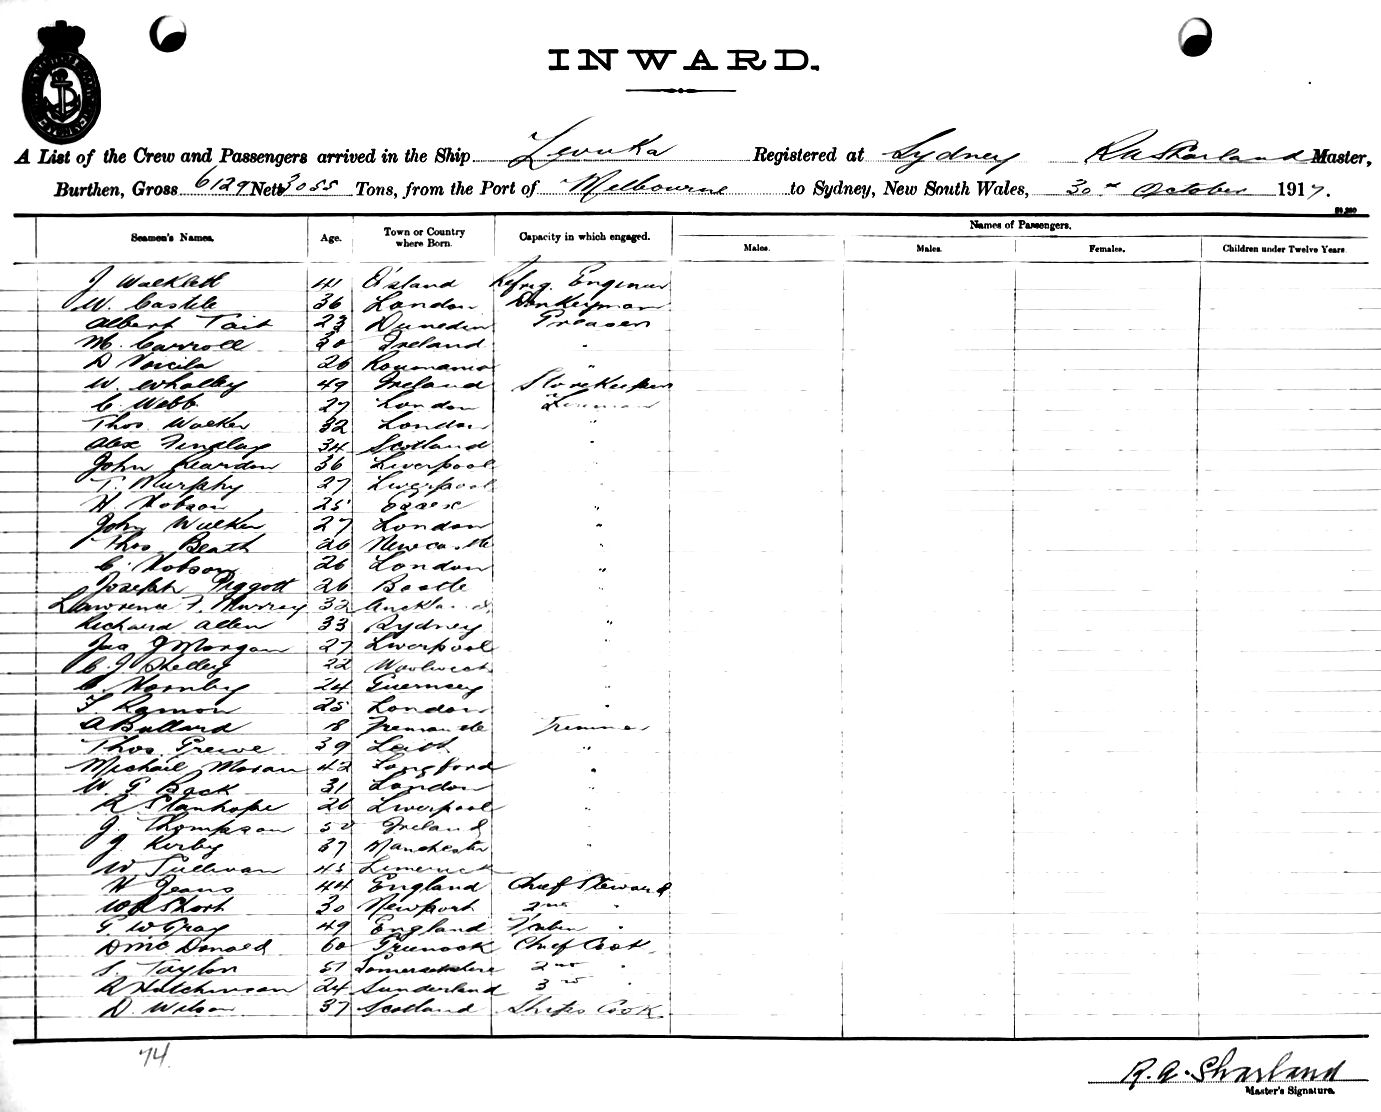 INWARD.
A List of the Crew and Passengers arrived in the Ship Levuka Registered at Sydney R A Sharland Master,
Burthen, Gross 6129 Nett 3055 Tons, from the Port of Melbourne to Sydney, New South Wales, 30th October 1917.
Seamen's Names. Age. Town or Country where Born. Capacity in which engaged. Names of Passengers.
Males. Males. Females. Children under Twelve Years.
J 41 Refrig. Engineer
W. Castle 36 London Donkeyman
Albert Tait 23 Dunedin Greaser
M. Carroll 30 Ireland "
D 26 Roumania "
W. Whalley 49 Ireland Storekeeper
C. Webb 27 London
Thos Walker 32 London "
Alex Findlay 34 Scotland "
John Reardon 36 Liverpool "
T. Murphy 27 Liverpool "
H Hobson 25 Essex "
John Walker 27 London "
Thos Beath 26 Newcastle "
C. Hobson 26 London "
Joseph Piggott 26 Bootle "
Lawrence F. Murray 32 Auckland "
Richard Allen 33 Sydney "
Jas J Morgan 27 Liverpool "
C. J Shelley 22 Woolwich "
C Hornby 24 Guernsey "
F. Ramon 25 London "
A Bullard 18 Fremantle Trimmer
Thos Greive 39 Leith "
Michail Moran 42 Longford "
W. G Back 31 London "
R Stanhope 26 Liverpool "
J. Thompson 50 Ireland "
J Kirby 37 Manchester "
W Sullivan 45 Limerick
H Jeans 44 England Chief Steward
W R Short 30 Newport 2nd "
G. W Gray 49 England "
D McDonald 60 Greenock Chief Cook
S. Taylor 51 Somersetshire 2nd "
R Hutchinson 24 Sunderland 3rd "
D. Wilson 37 Scotland Ships Cook
74.
R. A. Sharland
Master's Signature.